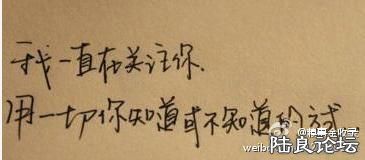 我一直在关注你.
用一切你知道或不知道的方式
陆良论坛